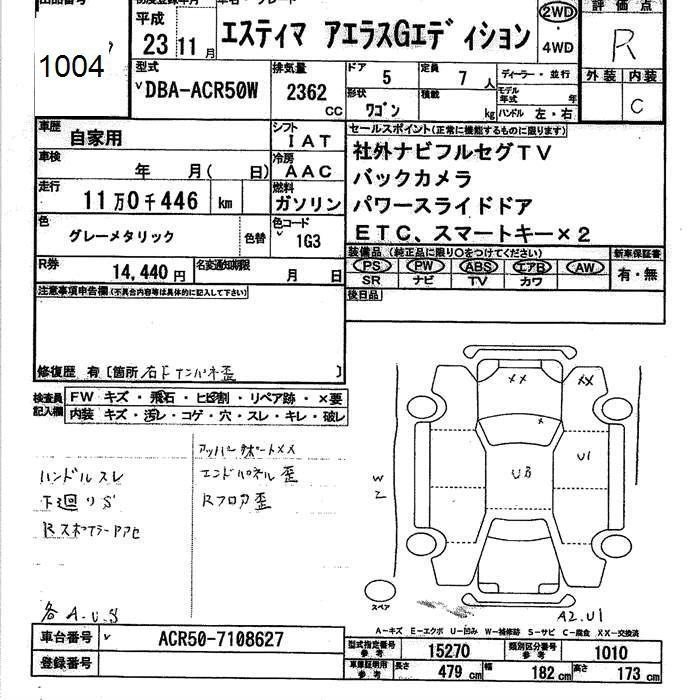 出品番号
1004
初度登録年月
平成
23 11月
エスティマ アエラスGエディション
2WD
・
4WD
評価点
R
外装 内装
C
型式
DBA-ACR50W
排気量
2362
CC
ドア 5
定員 7人
ディーラー・並行
形状 ワゴン
積載 kg
モデル年式 年
ハンドル 左・右
車歴
自家用
シフト
IAT
車検
年 月( 日)
冷房
AAC
走行
11万0千446 km
燃料
ガソリン
色
グレーメタリック
色替
色コード
1G3
R券
14,440円
名変通知期限
月 日
セールスポイント(正常に機能するものに限ります)
社外ナビフルセグTV
バックカメラ
パワースライドドア
ETC、スマートキー×2
装備品(純正品に限り○をつけてください)
PS PW ABS エアB AW
SR ナビ TV カワ
新車保証書
有・無
後日品
注意事項申告欄(不具合内容等は具体的に記入して下さい)
修復歴 有〔箇所 右Fインパネ歪 〕
検査員
記入欄
FW キズ・飛石・ヒビ割・リペア跡・×要
内装 キズ・汚レ・コゲ・穴・スレ・キレ・破レ
ハンドルスレ
下廻りS
Rスポイラーアアセ
各A.U.S
アッパーサポートXX
エンドパネル歪
Rフロア歪
XX
XX
X
UB
U1
W2
スペア
A2.U1
A-キズ E-エクボ U-凹み W-補修跡 S-サビ C-腐食 XX-交換済
車台番号
ACR50-7108627
登録番号
型式指定番号
参考
15270
類別区分番号
参考
1010
車庫証明用
参考
長さ 479 cm
幅 182 cm
高さ 173 cm